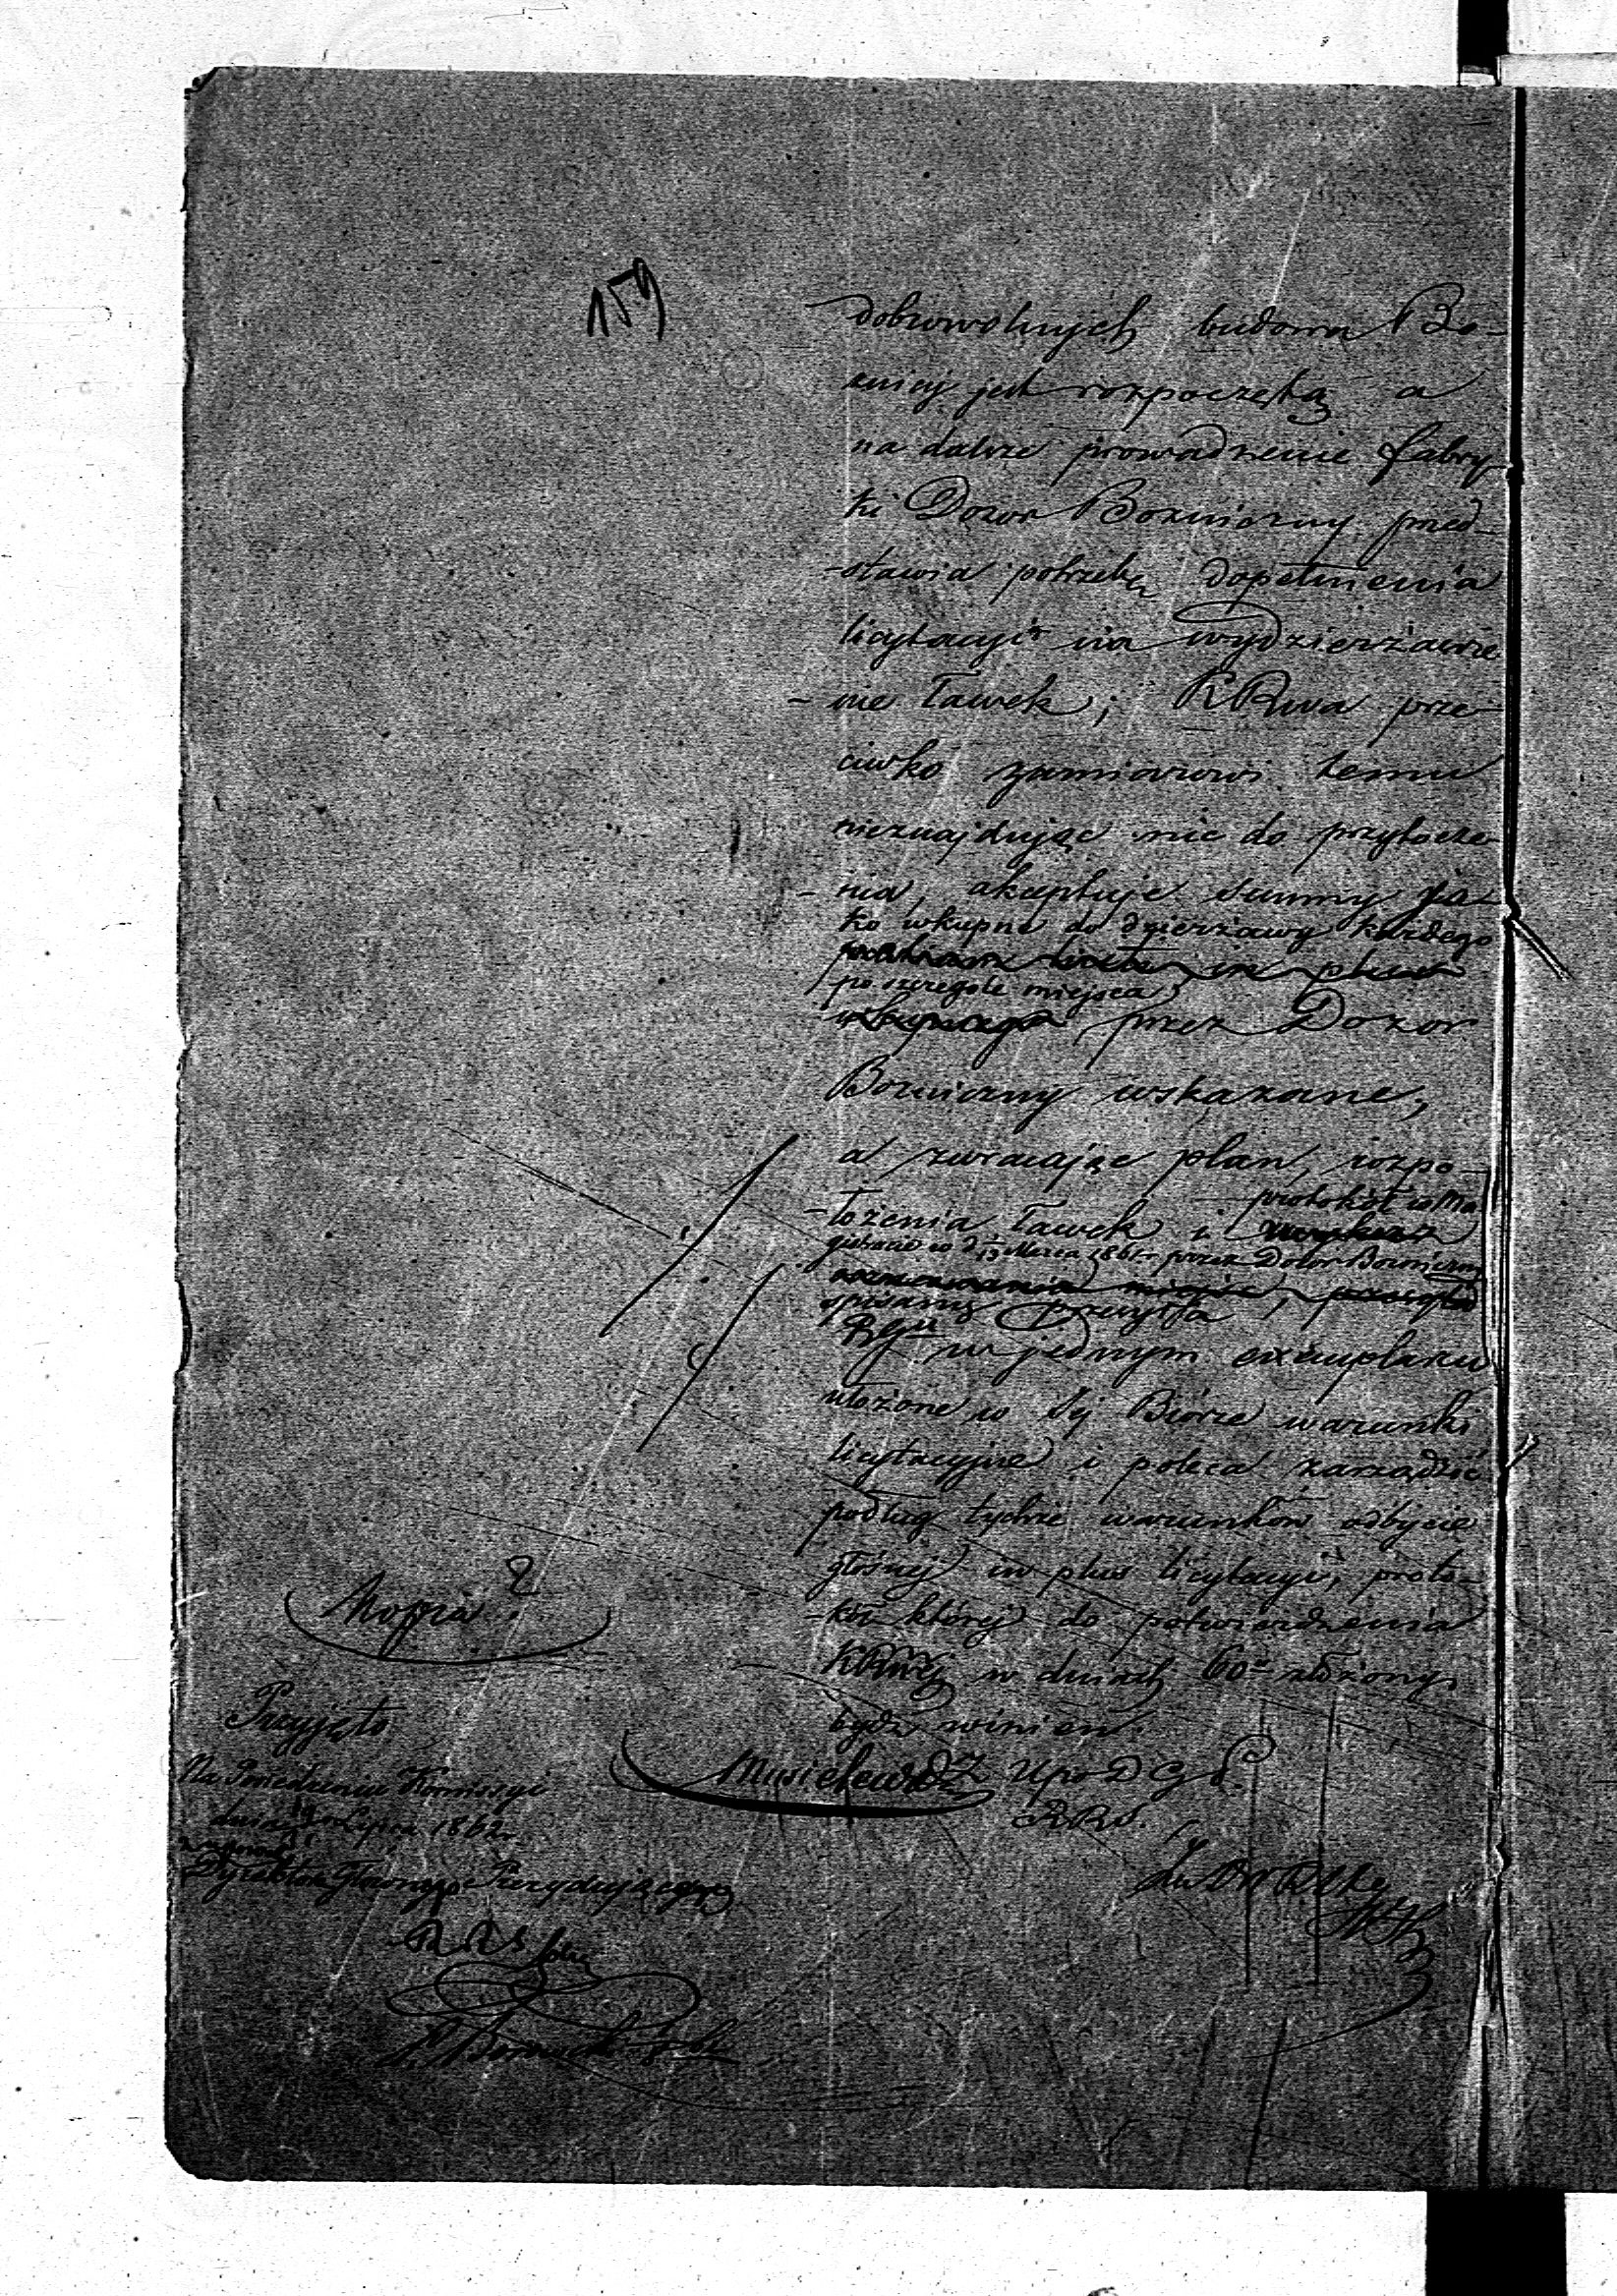 159
dobrowolnych budowa Bo-
żnicy jest rozpoczęta a
na dalsze prowadzenie fabry-
ki Dozor Bożniczny przed-
-stawia potrzebę dopełnienia
licytacyi na wydzierżawie
-nie ławek; KRwa prze-
ciwko zamiarowi temu
nieznajdując nic do przytocze-
-nia, akceptuje summy ja-
ko wkupne do dzierżawy każdego
po szczegole miejsca
przez Dozor
Bożniczny wskazane,
a zwracając plan, rozpo-
protokół w Ma
-łożenia ławek i
gistracie w d. Marca 1861 r. przez Dozor Bożniczny
spisany przesyła
RGu w jednym exemplarzu
ułożone w Jéj Biórze warunki
licytacyjne i poleca zarządzić
podług tychże warunków odbycie
głośnéj in plus licytacyi, proto-
-kół któréj do potwierdzenia
KRwéj w dniach 60u złożony
bydź winien.
Przyjęto
Na Posiedzeniu Kommissyi
dnia Lipca 1862 r.
Dyrektora Głównego Prezydującego
RRS
Musielewicz Upo D G P.
RRS.